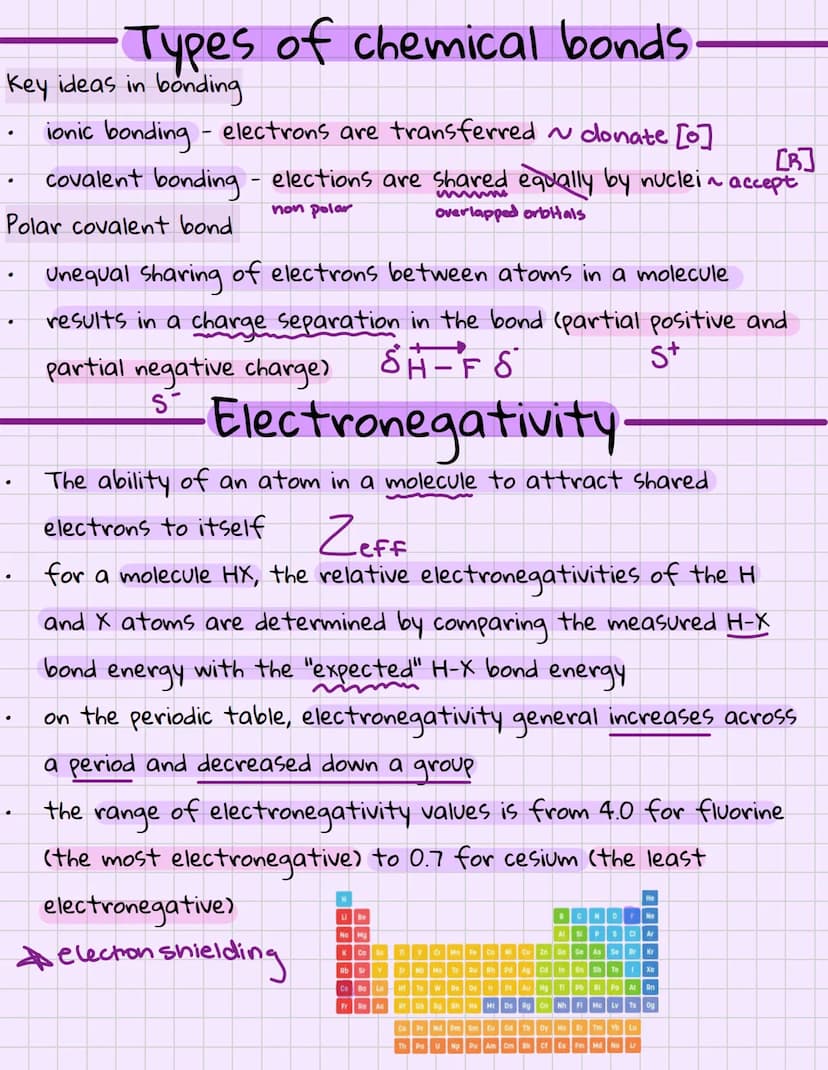 Types of chemical bonds
Key ideas in bonding
• ionic bonding - electrons are transferred ~ donate [O]
[R]
• covalent bonding - elections are shared equally by nuclei ~ accept
non polar overlapped orbitals
Polar covalent bond
• unequal sharing of electrons between atoms in a molecule
• results in a charge separation in the bond (partial positive and
partial negative charge) δ⁺ H – F δ⁻ S⁺
S⁻
Electronegativity
• The ability of an atom in a molecule to attract shared
electrons to itself Zeff
• for a molecule HX, the relative electronegativities of the H
and X atoms are determined by comparing the measured H-X
bond energy with the "expected" H-X bond energy
• on the periodic table, electronegativity general increases across
a period and decreased down a group
• the range of electronegativity values is from 4.0 for fluorine
(the most electronegative) to 0.7 for cesium (the least
electronegative)
electron shielding
H He
Li Be B C N O F Ne
Na Mg Al Si P S Cl Ar
K Ca Sc Ti V Cr Mn Fe Co Ni Cu Zn Ga Ge As Se Br Kr
Rb Sr Y Zr Nb Mo Tc Ru Rh Pd Ag Cd In Sn Sb Te I Xe
Cs Ba La Hf Ta W Re Os Ir Pt Au Hg Tl Pb Bi Po At Rn
Fr Ra Ac Rf Db Sg Bh Hs Mt Ds Rg Cn Nh Fl Mc Lv Ts Og
Ce Pr Nd Pm Sm Eu Gd Tb Dy Ho Er Tm Yb Lu
Th Pa U Np Pu Am Cm Bk Cf Es Fm Md No Lr